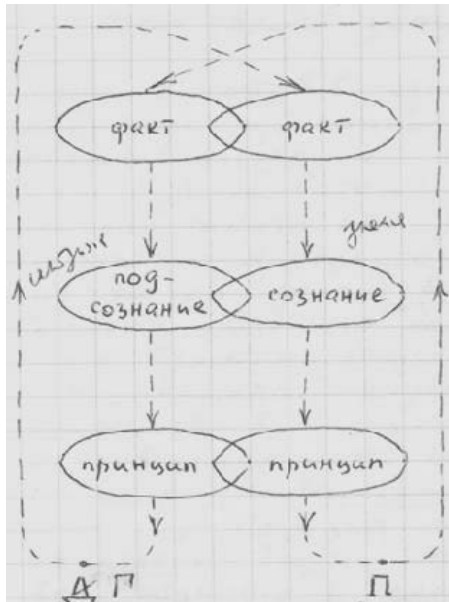 факт факт
под-
сознание сознание
принцип принцип
Д Г П